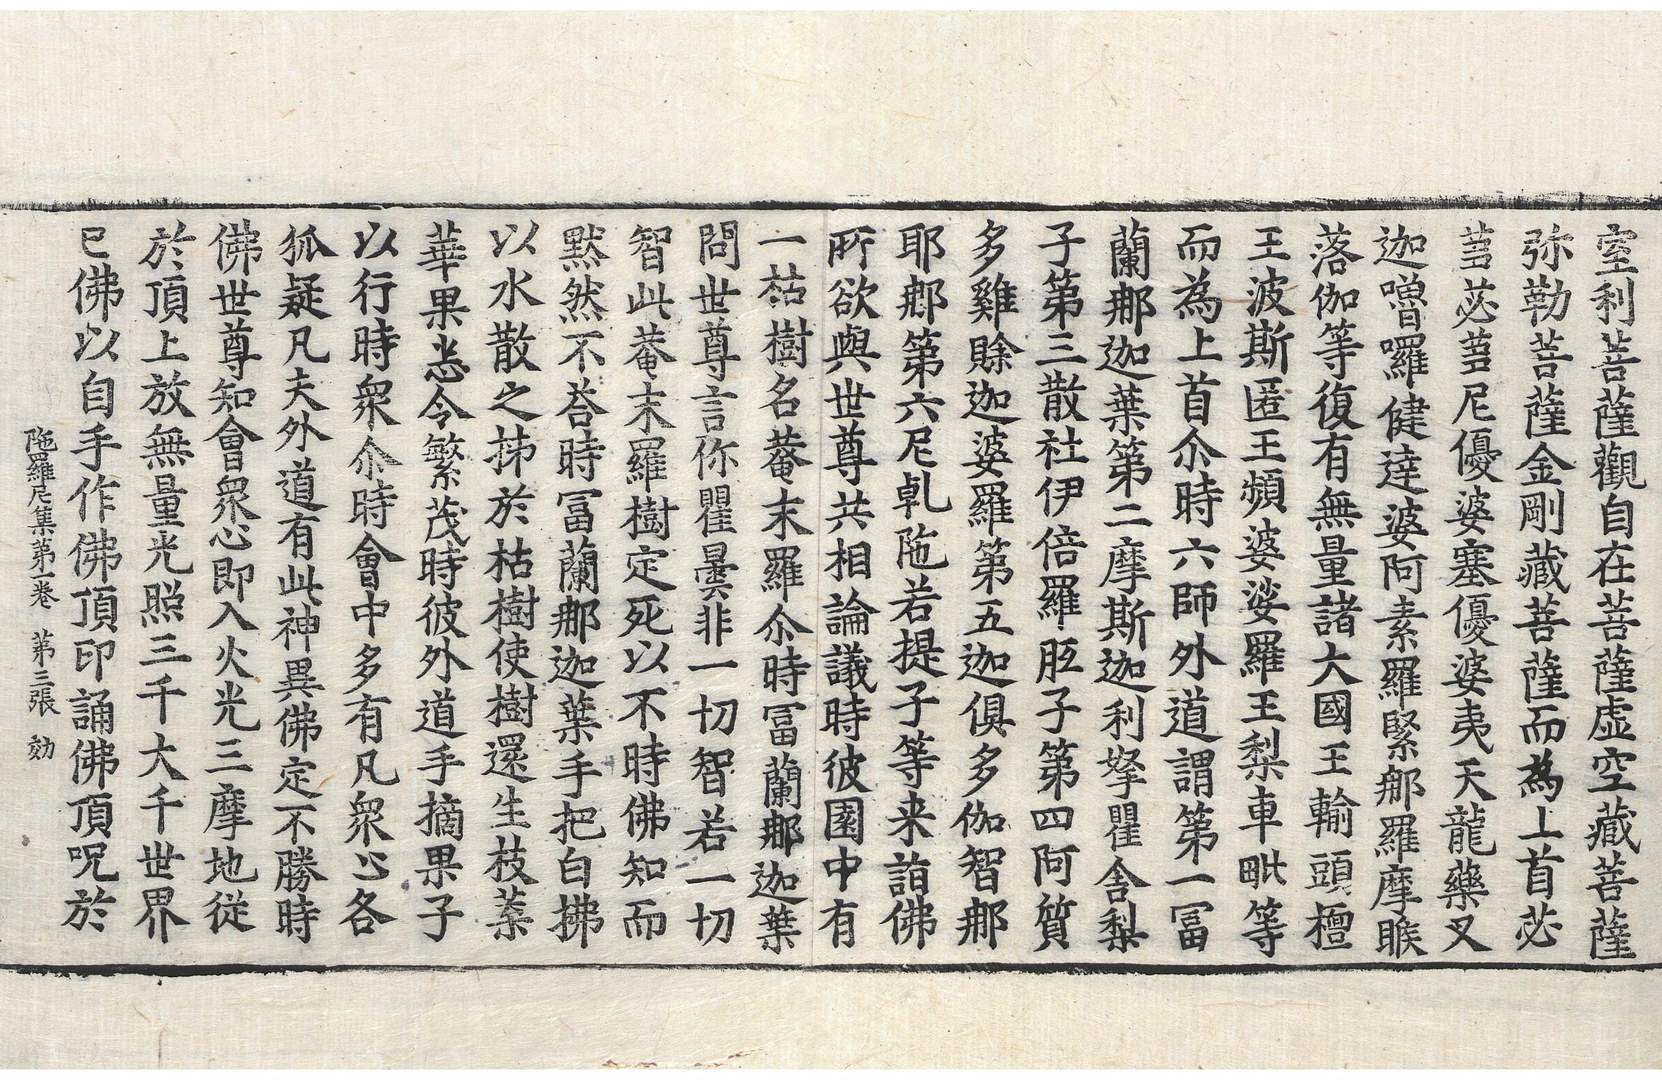 室利菩薩觀自在菩薩虛空藏菩薩
弥勒菩薩金剛藏菩薩而為上首苾
蒭苾蒭尼優婆塞優婆夷天龍藥叉
迦嚕囉健達婆阿素羅緊那羅摩睺
落伽等復有無量諸大國王輸頭檀
王波斯匿王頻婆娑羅王梨車毗等
而為上首尒時六師外道謂第一冨
蘭那迦葉第二摩斯迦利拏瞿舎梨
子第三散社伊倍羅胝子第四阿質
多雞賒迦婆羅第五迦俱多伽智那
耶那第六尼乹陁若提子等来詣佛
所欲與世尊共相論議時彼園中有
一枯樹名菴末羅尒時冨蘭那迦葉
問世尊言你瞿曇非一切智若一切
智此菴末羅樹定死以不時佛知而
黙然不荅時冨蘭那迦葉手把白拂
以水散之拂於枯樹使樹還生枝葉
華果悉令繁茂時彼外道手摘果子
以行時衆尒時會中多有凡衆心各
狐疑凡夫外道有此神異佛定不勝時
佛世尊知會衆心即入火光三摩地從
於頂上放無量光照三千大千世界
已佛以自手作佛頂印誦佛頂呪於
陁羅尼集苐一卷　苐三張　効